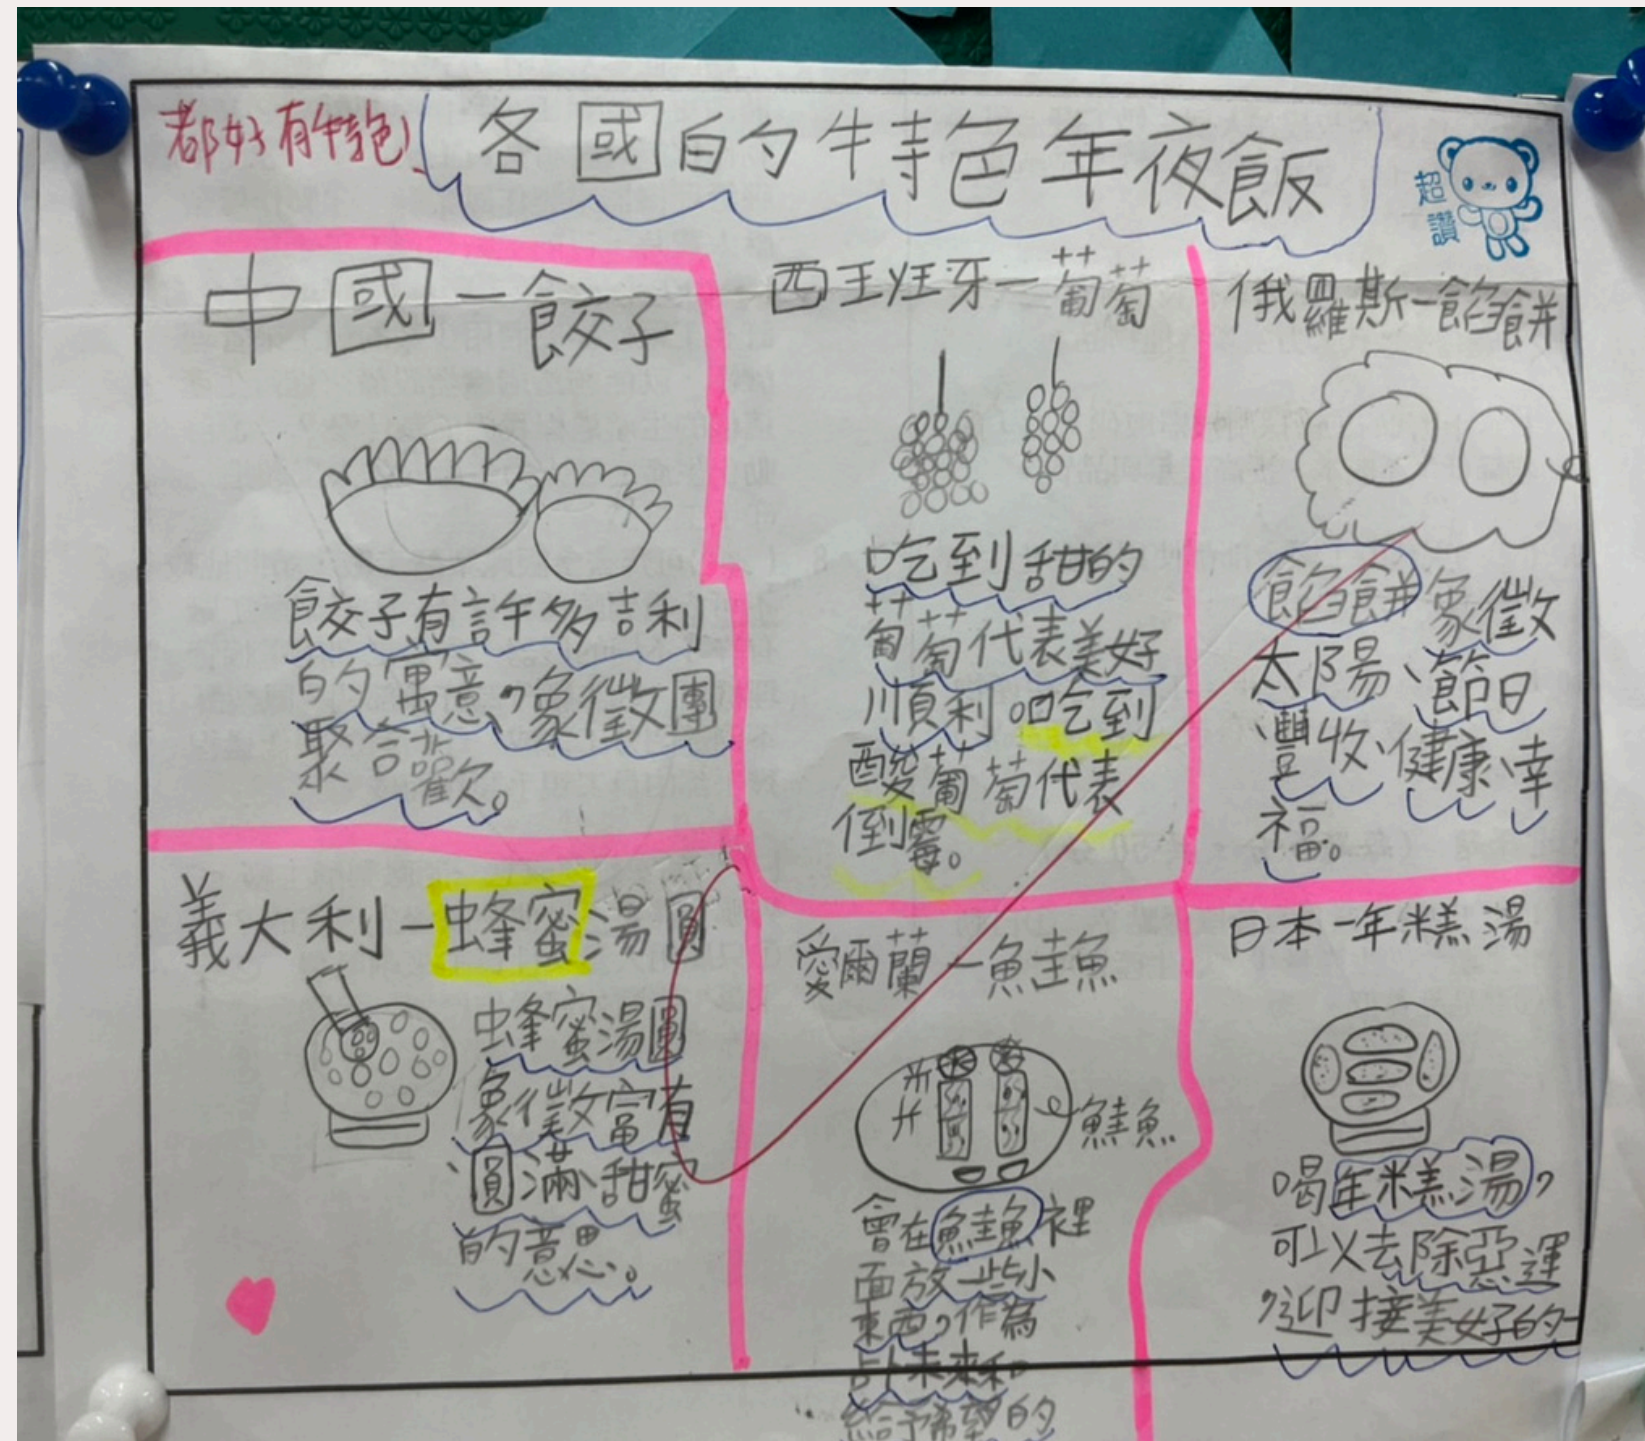 都好有特色!
各國的特色年夜飯
超
讚
中國-餃子
餃子有許多吉利
的寓意,象徵團
聚合歡。
西王班牙-葡萄
吃到甜的
葡萄代表美好
順利。吃到
酸葡萄代表
倒霉。
俄羅斯-餡餅
餡餅象徵
太陽、節日
、豐收、健康、幸
福。
義大利-蜂蜜湯圓
蜂蜜湯圓
象徵富有
、圓滿甜蜜
的意思。
愛爾蘭-鮭魚
鮭魚
會在鮭魚裡
面放一些小
東西,作為
占卜未來和
給予希望的
日本-年糕湯
喝年糕湯,
可以去除惡運
,迎接美好的一